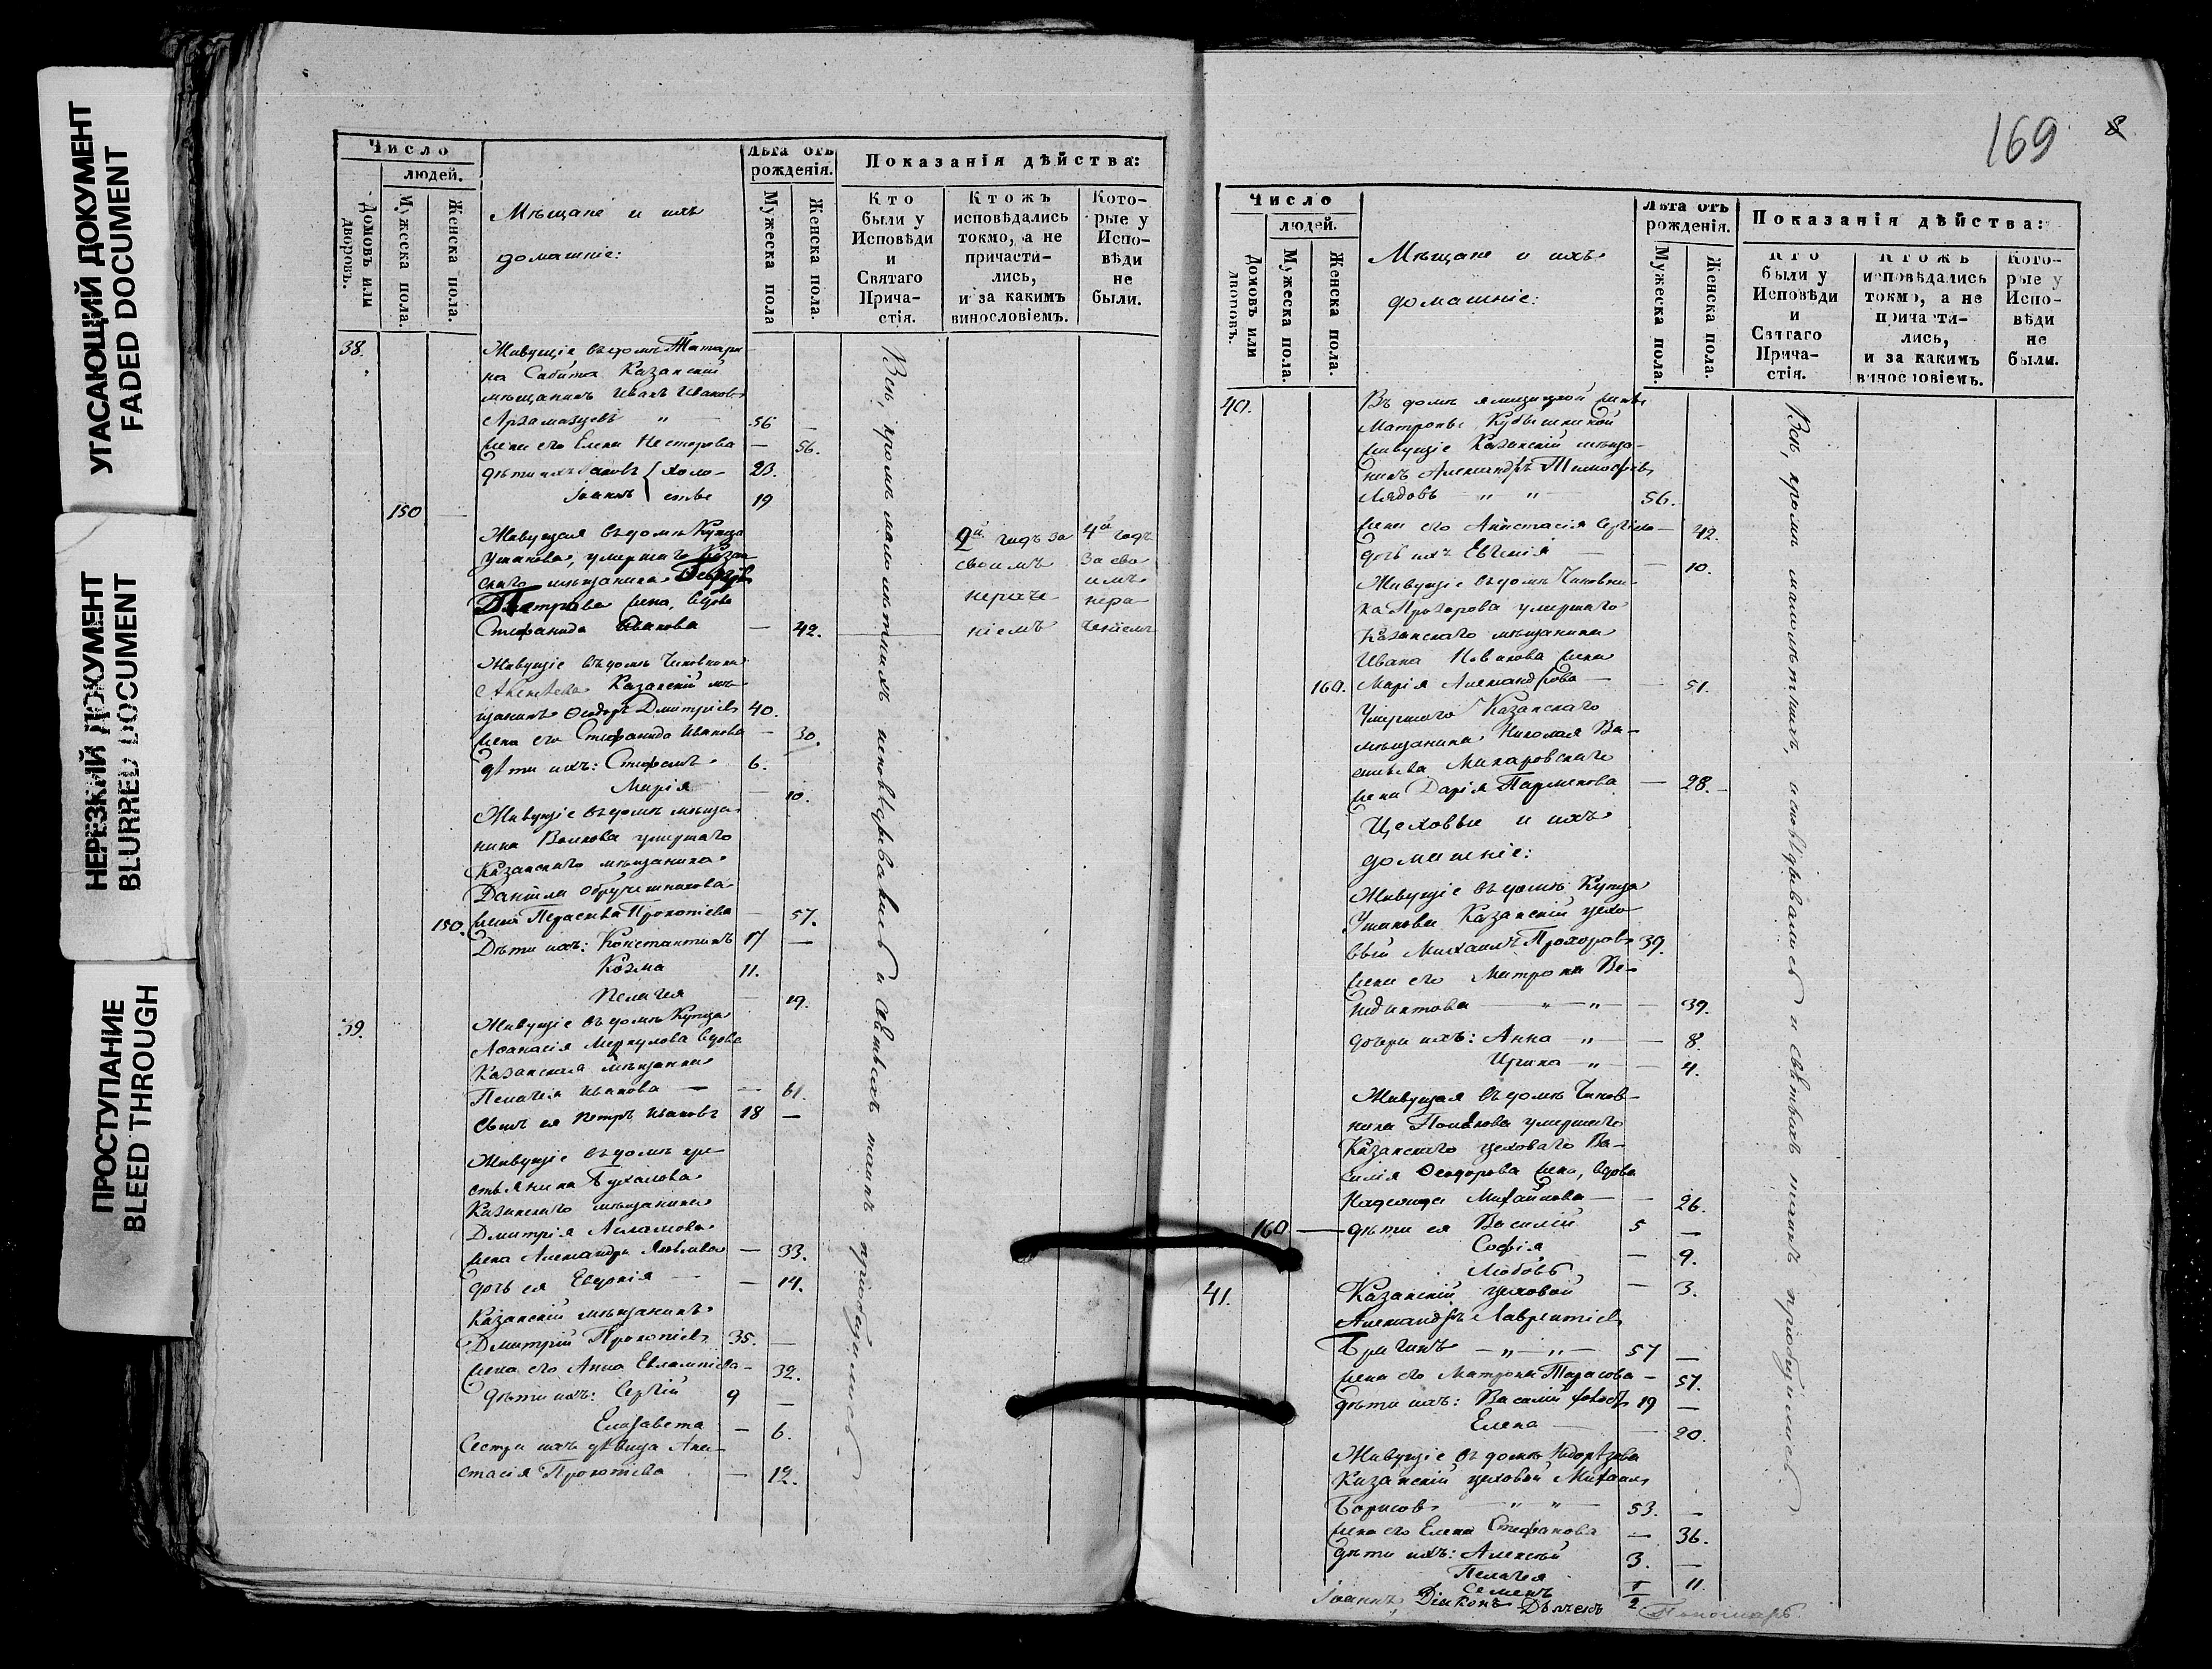 УГАСАЮЩИЙ ДОКУМЕНТ
FADED DOCUMENT
НЕРЕЗКИЙ ДОКУМЕНТ
BLURRED DOCUMENT
ПРОСТУПАНИЕ
BLEED THROUGH
Число
людей.
Домовъ или дворовъ.
Мужеска пола.
Женска пола.
Мѣщане и ихъ
домашніе:
Лѣта отъ
рожденія.
Мужеска пола
Женска пола.
Показанія дѣйства:
Кто
были у
Исповѣди
и
Святаго
Прича-
стія.
Ктожъ
исповѣдались
токмо, а не
причасти-
лись,
и за какимъ
винословіемъ.
Кото-
рые у
Испо-
вѣди
не
были.
38.
Живущіе въ домѣ Татари
на Сабита Казанскій
мѣщанинъ Иванъ Ивановъ
Арзамазцевъ " 56 —
жена его Елена Нестерова — 56.
дѣти ихъ Іаковъ холо- 23.
Іоаннъ стые 19
150 —
Живущая въ домѣ Купца
Ушакова, умершаго Казан
скаго мѣщанина
Дмитріева жена, вдова
Стефанида Иванова — 42.
2й годъ за
своимъ
нераче
ніемъ
4й годъ
за сво
имъ
нера
ченіемъ
Живущіе въ домѣ Чиновника
Казанскій мѣ
щанинъ Ѳеодоръ Дмитріевъ 40.
жена его Стефанида Иванова — 30.
дѣти ихъ: Стефанъ 6.
Марія — 10.
Живущіе въ домѣ мѣща
нина Волкова умершаго
Казанскаго мѣщанина
Даніила Обручешникова
150. жена Параскева Прокопіева — 57.
Дѣти ихъ: Константинъ 17 —
Козма 11.
Пелагея — 19.
39.
Живущіе въ домѣ Купца
Аѳанасія Меркулова вдова
Казанская мѣщанка
Пелагея Иванова — — 61.
Сынъ ея Петръ Ивановъ 18 —
Живущіе въ домѣ кре
стьянина Бухалова
Казанскаго мѣщанина
Дмитрія
жена Александра Яковлева — 33.
дочь ея Евдокія — — 14.
Казанскій мѣщанинъ
Дмитрій Прокопіевъ 35. —
жена его Анна Евлампіева — 32.
дѣти ихъ: Сергій 9 —
Елизавета — 6.
Сестра ихъ дѣвица Ана-
стасія Прокопіева — 12.
Всѣ, кромѣ малолѣтнихъ исповѣдывались и святыхъ таинъ пріобщились.
169
8
Число
людей.
Домовъ или дворовъ.
Мужеска пола.
Женска пола.
Мѣщане и ихъ
домашніе:
Лѣта отъ
рожденія.
Мужеска пола.
Женска пола.
Показанія дѣйства:
Кто
были у
Исповѣди
и
Святаго
Прича-
стія.
Ктожъ
исповѣдались
токмо, а не
причасти-
лись,
и за какимъ
винословіемъ.
Кото-
рые у
Испо-
вѣди
не
были.
40.
Въ домѣ ямщицкой жены
Матроны Кубышкиной
живущіе Казанскій мѣща-
нинъ Александръ Тимоѳеевъ
Лядовъ — " " — 56.
жена его Анастасія Сергіева — 42.
дочь ихъ Евгенія — — 10.
Живущіе въ домѣ Чиновни-
ка Прохорова умершаго
Казанскаго мѣщанина
Ивана Новикова жена
160. Марія Александрова — — 51.
Умершаго Казанскаго
мѣщанина Николая Ва-
сильева Макаровскаго
жена Дарія Парменова — 28. —
Цеховые и ихъ
домашніе:
Живущіе въ домѣ Купца
Ушакова Казанскій цехо
вый Михаилъ Прохоровъ 39.
жена его Матрона Ве-
недиктова — " — " — — 39.
дочери ихъ: Анна — " — — 8.
Ирина — " — — 4.
Живущая въ домѣ Чинов-
ника Полякова умершаго
Казанскаго цеховаго Ва-
силія Ѳеодорова жена, вдова
Надежда Михайлова — — 26.
160 — дѣти ея Василій 5 —
Софія — 9.
Любовь — 3.
41.
Казанскій цеховой
Александръ Лаврентіевъ
Брагинъ — " — " — 57 —
жена его Матрона Тарасова — 57.
дѣти ихъ: Василій холостъ 19 —
Елена — — 20.
Живущіе въ домѣ
Казанскій цеховой Михаилъ
Борисовъ — " " — 53. —
жена его Елена Стефанова — 36.
дѣти ихъ: Алексѣй 3. —
Пелагея — 11
Семенъ 1/2
Всѣ, кромѣ малолѣтнихъ, исповѣдывались и святыхъ таинъ пріобщились
Іоаннъ, Діаконъ Дьячекъ Пономарь